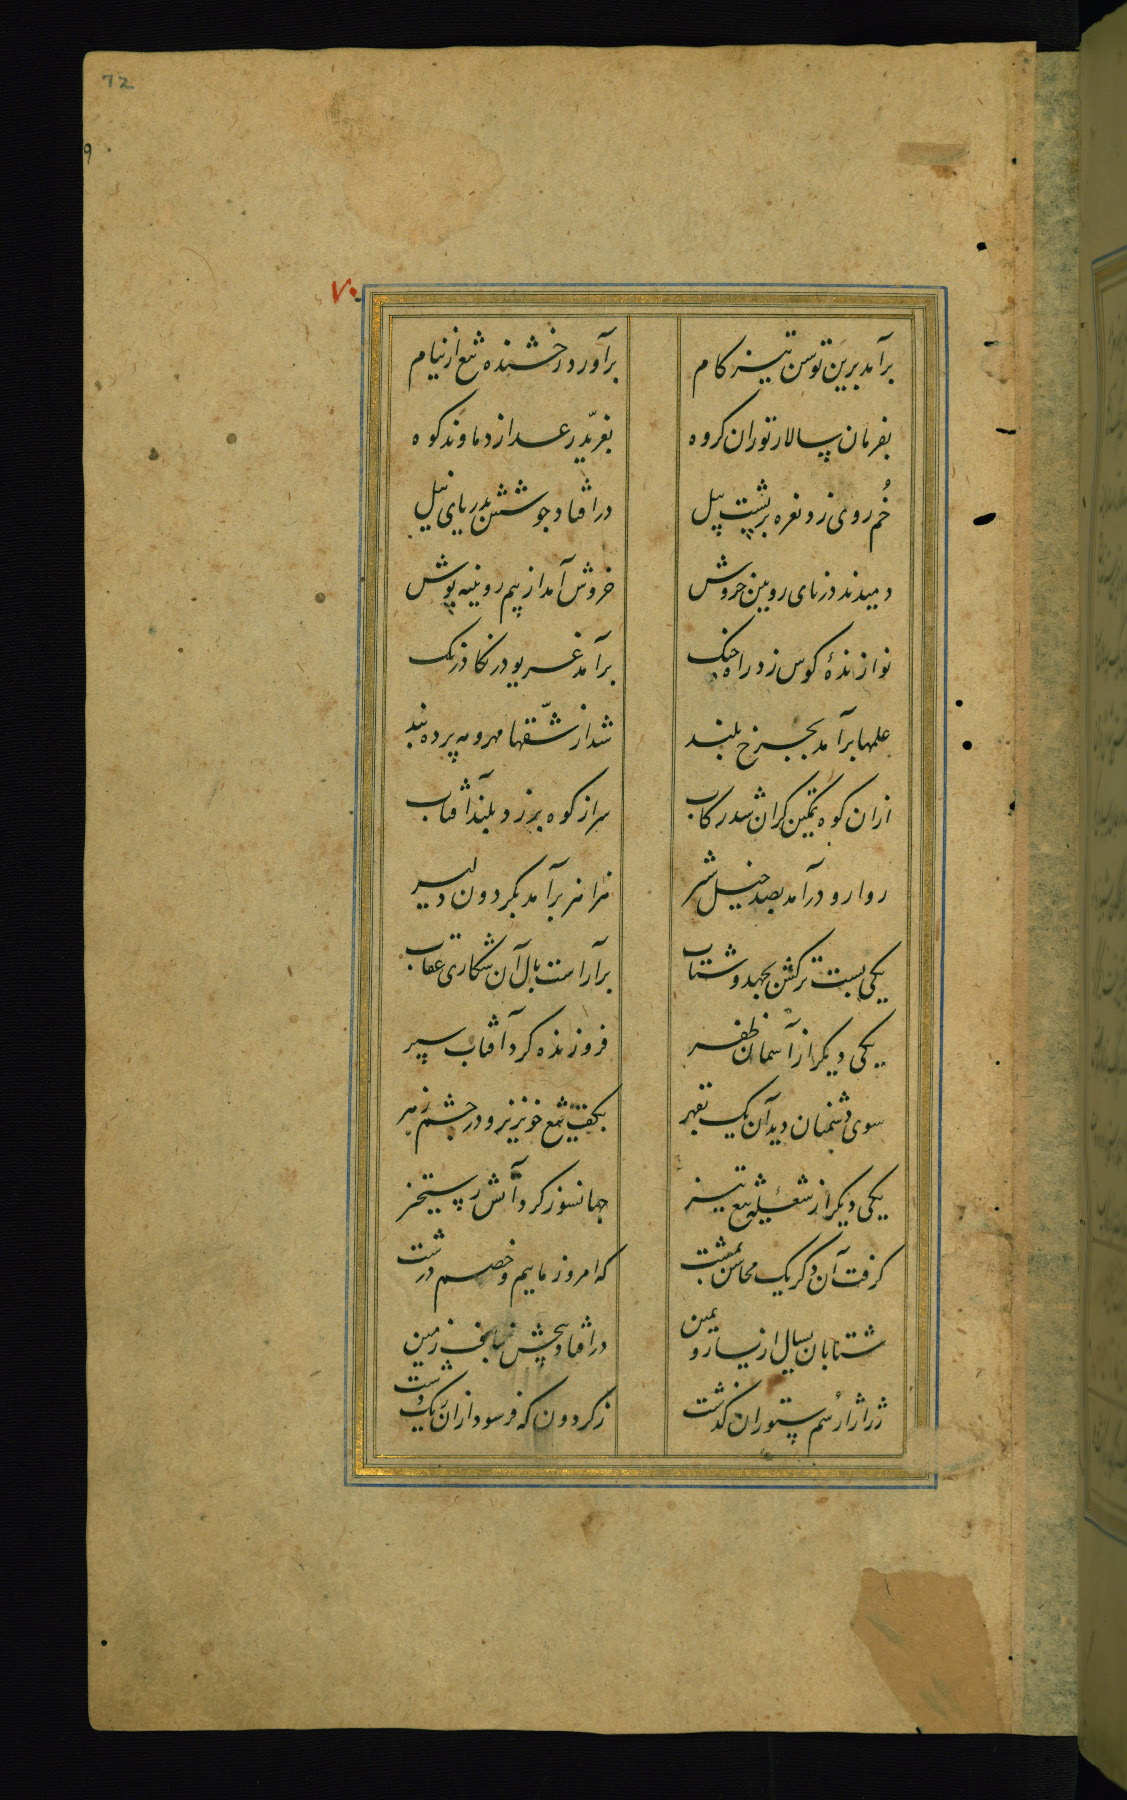 72
9
٧٠
برآمد برین توسن تیز کام برآورد رخشنده تیغ از نیام
بفرمان سالار توران کروه بغرّید رعد از دماوند کوه
خُم روی زد نعره بر پشت پیل درافتاد جوشش بدریای نیل
دمیدند در نای رویین خروش خروش آمد از رویینه پوش
نوازندهٔ کوس زد راه جنک برآمد غریو در
علمها برآمد بچرخ بلند شد از شقّها مهر و مه پرده بند
ازان کوه تمکین کران شد رکاب سر از کوه برزد بلند آفتاب
روارو درآمد بصد خیل شیر برآمد بکردون دلیر
یکی بست ترکش بجهد و شتاب برآراست بال آن شکاری عقاب
یکی دیکر از آسمان ظفر فروزنده کرد آفتاب سپر
سوی دشمنان دید آن یک بقهر بکف تیغ خونریز و در چشم زهر
یکی دیکر از شعلهٔ تیغ تیز جهانسوز کرد آتش رستخیز
کرفت آن دکر یک محاسن بمشت که امروز ماییم و خصم درشت
شتابان یسال از یسار و یمین درافتاد پیچش بناف زمین
سم ستوران کذشت ز کردون که فرسود ازان یک دشت